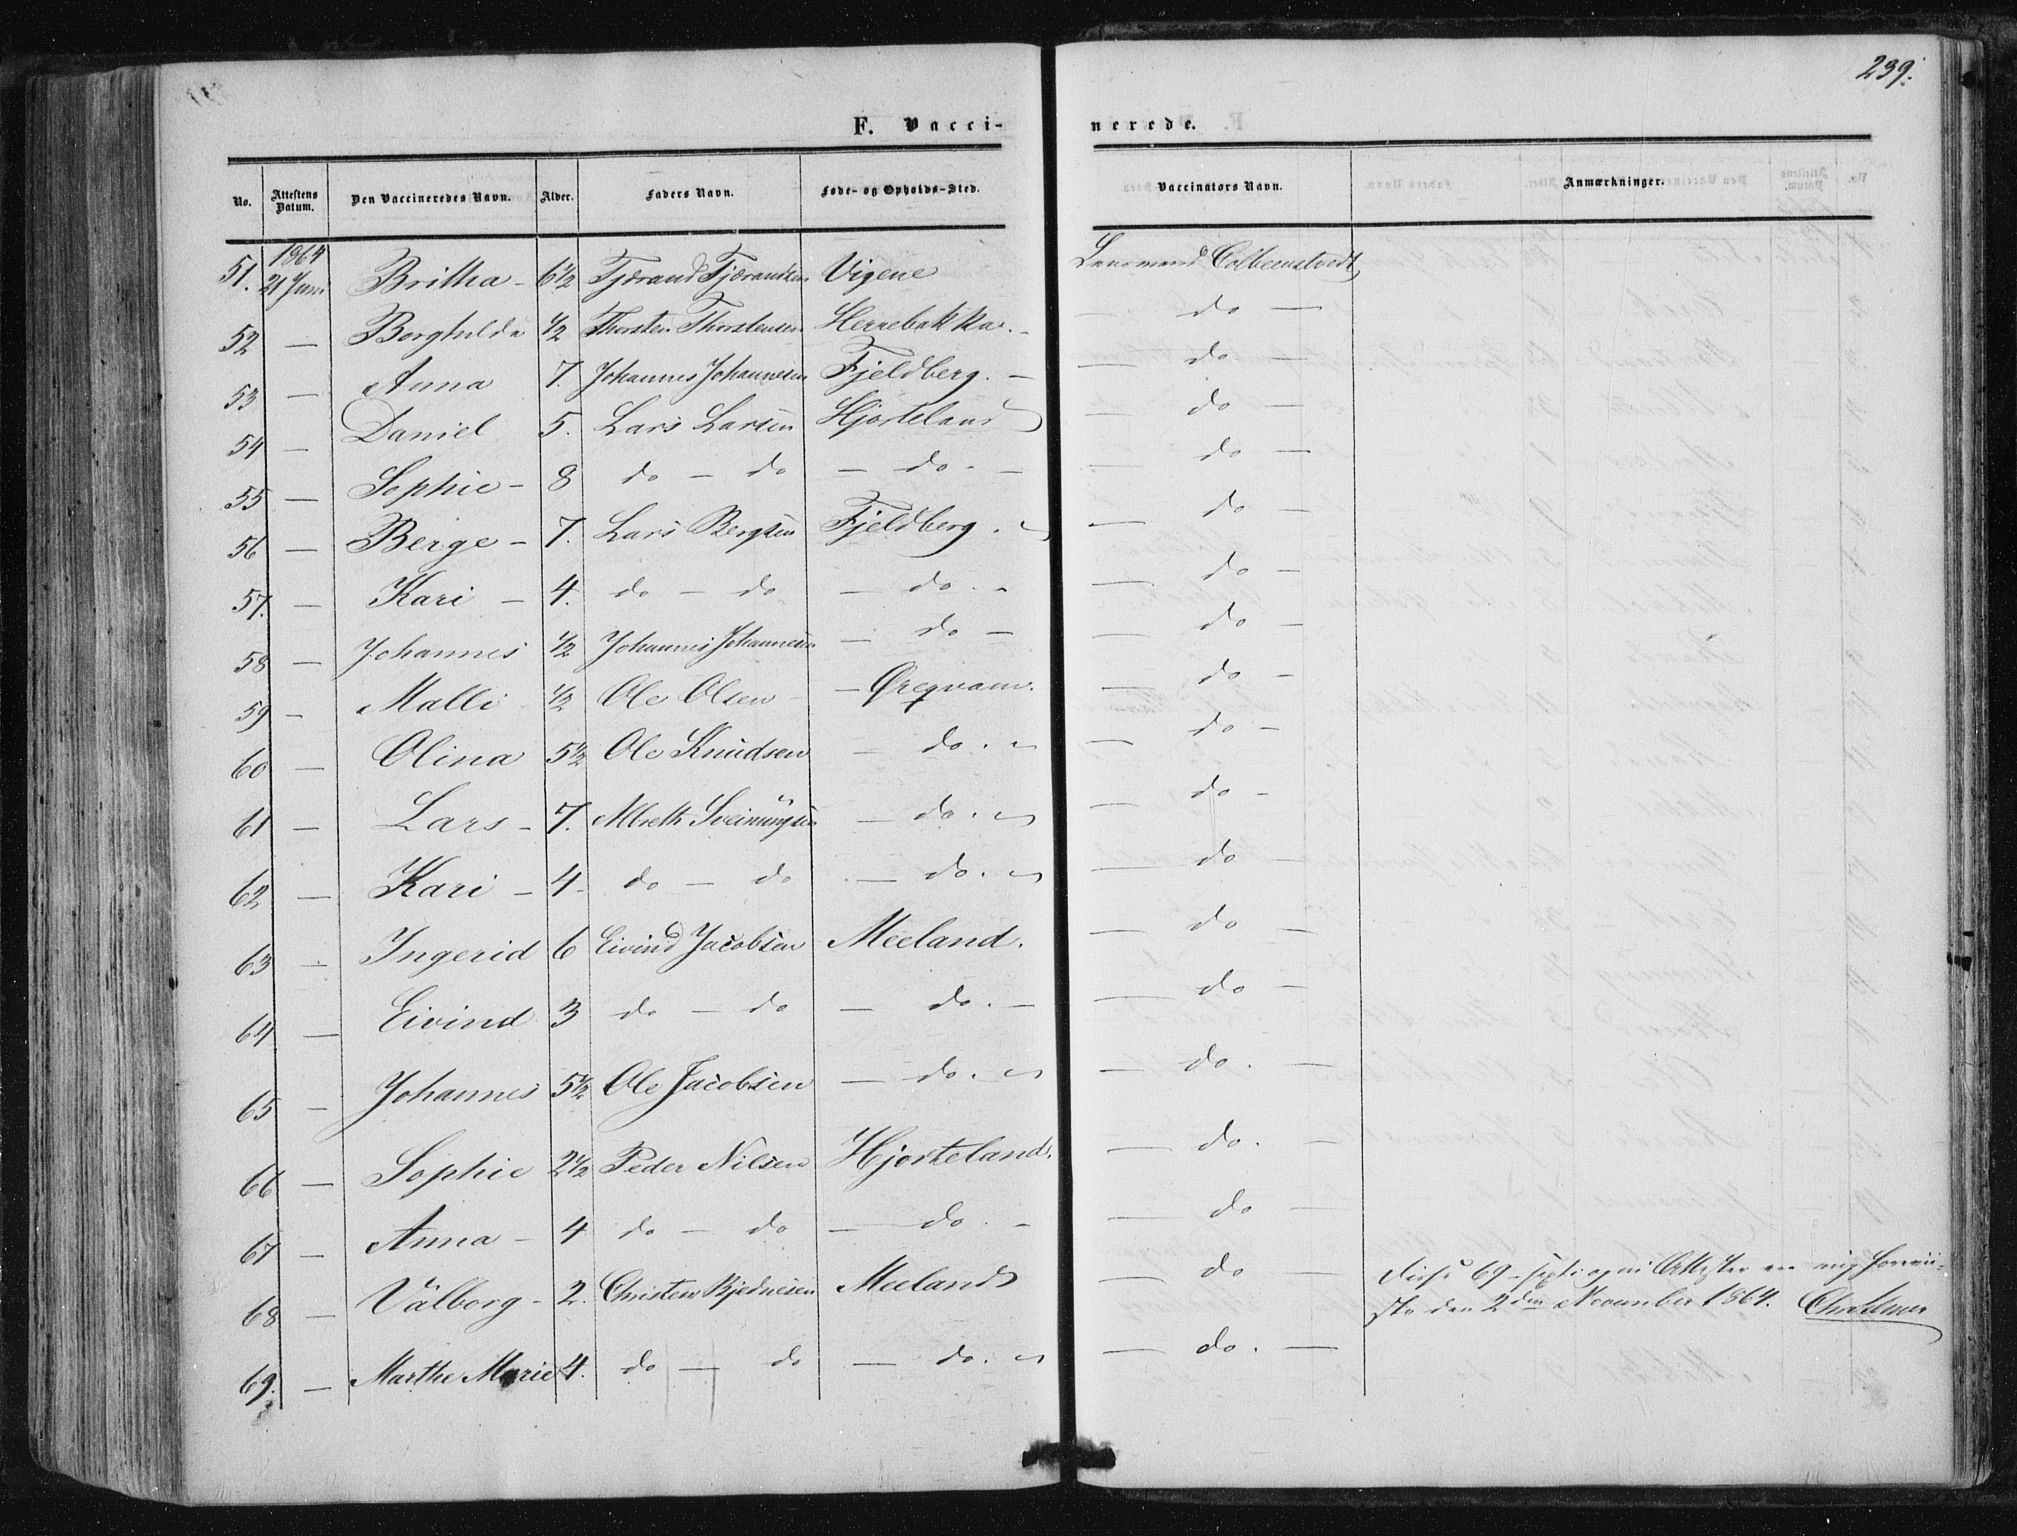 239.
F. Vacci-
nerede.
No. Attestens Datum. Den Vaccineredes Navn. Alder. Faders Navn. Føde- og Opholds-Sted. Vaccinators Navn. Anmærkninger.
1864
51. 21 Juni Britha - 6½ Tjerand Tjerandsen Vigene
52 — Borghilda ½ Thorsten Thorstensen Herrebakka. — do —
53 — Anna 7. Johannes Johannesen Fjeldberg. — do —
54 — Daniel 5. Lars Larsen Hjorteland — do —
55 — Sophie - 8 do — do — do. — — do —
56 — Berge - 7. Lars Bergsen Fjeldberg. — do —
57. — Kari — 4. do — do — do. — do —
58 — Johannes ½ Johannes Johannesen — do — — do —
59 — Malli ½ Ole Olsen — Øregvam. — do —
60 — Olina 5½ Ole Knudsen — do. — do —
61 — Lars - 7. Albreth Sveinungsen — do. — do —
62 — Kari — 4 - do — do — do. — do —
63 — Ingerid 6 Eivind Jacobsen Meeland. — do —
64 — Eivind 3 do — do — do. — — do —
65 — Johannes 5½ Ole Jacobsen — do. — do. —
66 — Sophie 2½ Peder Nilsen Hjorteland. — do. —
67 — Anna - 4 do — do — do. — — do —
68 — Valborg - 2. Christen Meeland — do —
Disse 69 - Attester ere mig
den 2den November 1864.
69. — Marthe Marie 4. do — do — do. — do. —